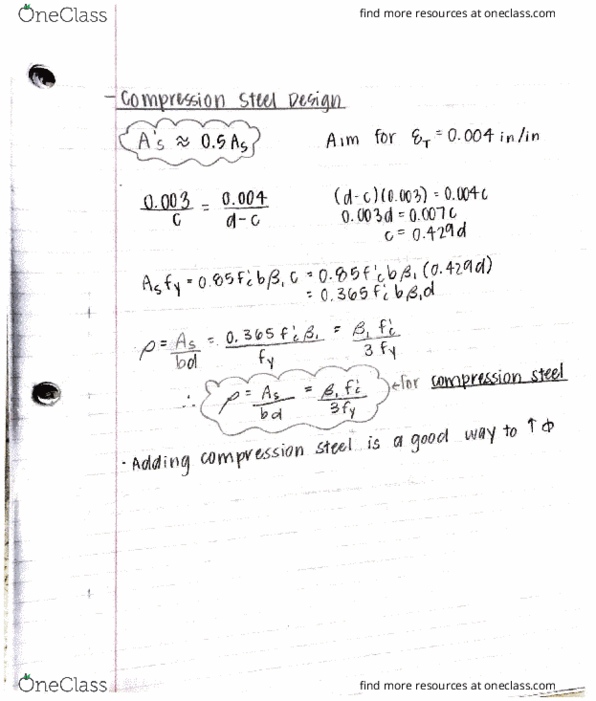 OneClass find more resources at oneclass.com
- Compression Steel Design
A's ≈ 0.5 As Aim for εT = 0.004 in/in
0.003/c = 0.004/d-c
(d-c)(0.003) = 0.004c
0.003d = 0.007c
c = 0.429d
Asfy = 0.85f'c bβ1 c = 0.85f'c bβ1 (0.429d)
= 0.365f'c bβ1d
ρ = As/bd = 0.365f'c β1/fy = β1 f'c/3fy
∴ ρ = As/bd = β1 f'c/3fy ← for compression steel
· Adding compression steel is a good way to ↑ φ
OneClass find more resources at oneclass.com